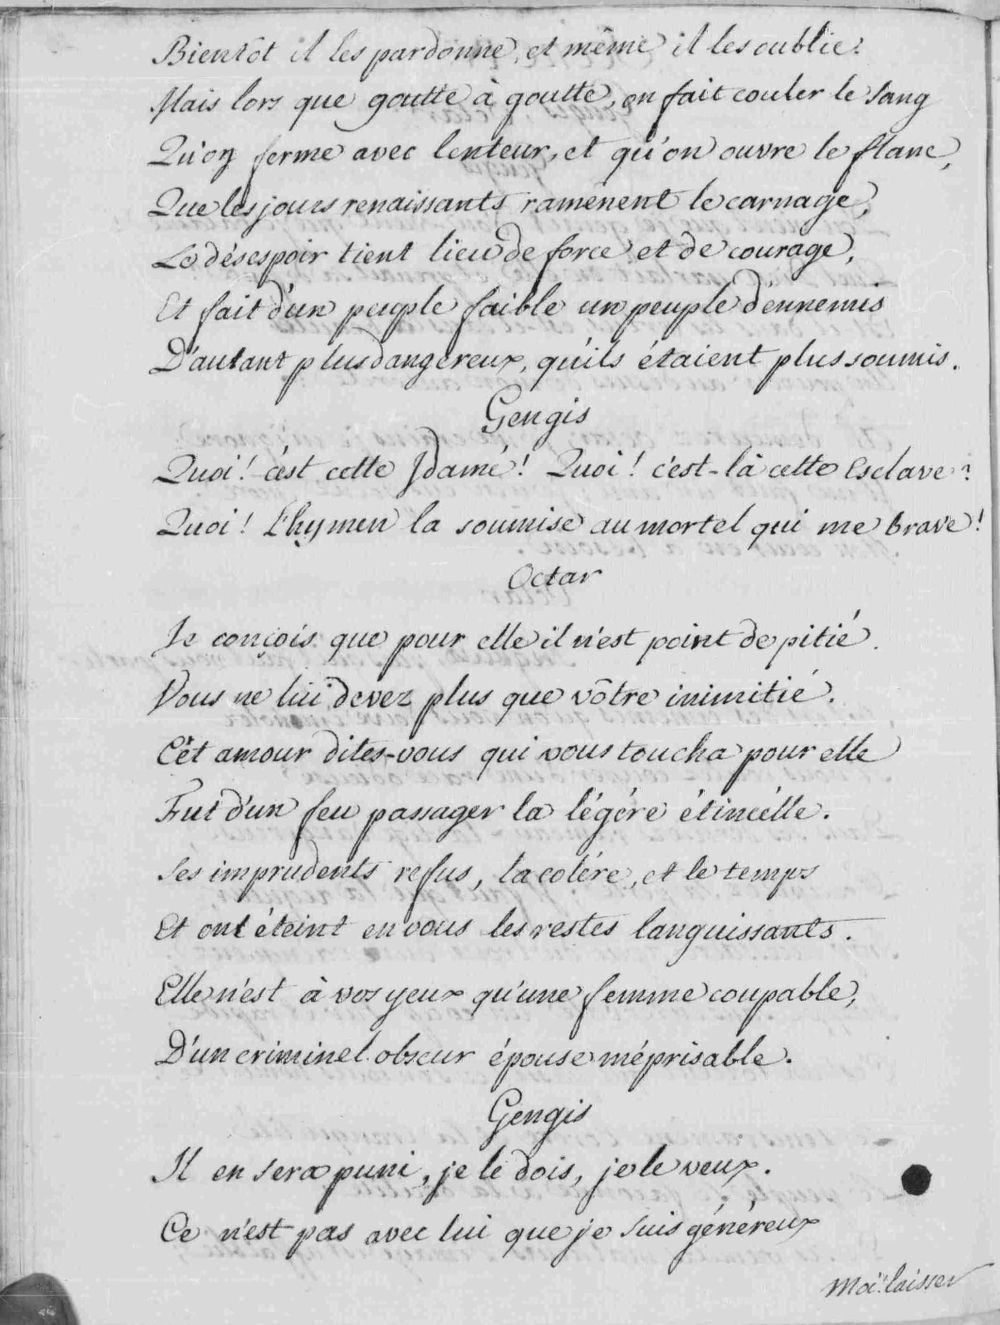 Bientôt il les pardonne, et même il les oublie.
Mais lors que goutte à goutte, on fait couler le sang
Qu'on ferme avec lenteur, et qu'on ouvre le flanc,
Que les jours renaissants ramènent le carnage,
Le désespoir tient lieu de force et de courage,
Et fait d'un peuple faible un peuple d'ennemis
D'autant plus dangereux, qu'ils étaient plus soumis.
Gengis
Quoi! c'est cette Idamé! Quoi! c'est-là cette Esclave?
Quoi! l'hymen la soumise au mortel qui me brave!
Octar
Je conçois que pour elle il n'est point de pitié.
Vous ne lui devez plus que vôtre inimitié.
Cèt amour dites-vous qui vous toucha pour elle
Fut d'un feu passager la légére étincelle.
Ses imprudents refus, la colére, et le temps
Et ont éteint en vous les restes languissants.
Elle n'est à vos yeux qu'une femme coupable,
D'un criminel obscur épouse méprisable.
Gengis
Il en sera puni, je le dois, je le veux.
Ce n'est pas avec lui que je suis généreux
Moi! laisser